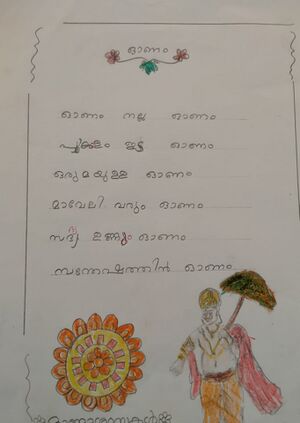 ഓണം
ഓണം നല്ല ഓണം
പൂക്കളം ഇട്ട ഓണം
ഒരുമയുള്ള ഓണം
മാവേലി വരും ഓണം
സദ്യ ഉണ്ണും ഓണം
സന്തോഷത്തിൻ ഓണം
ഓണാശംസകൾ